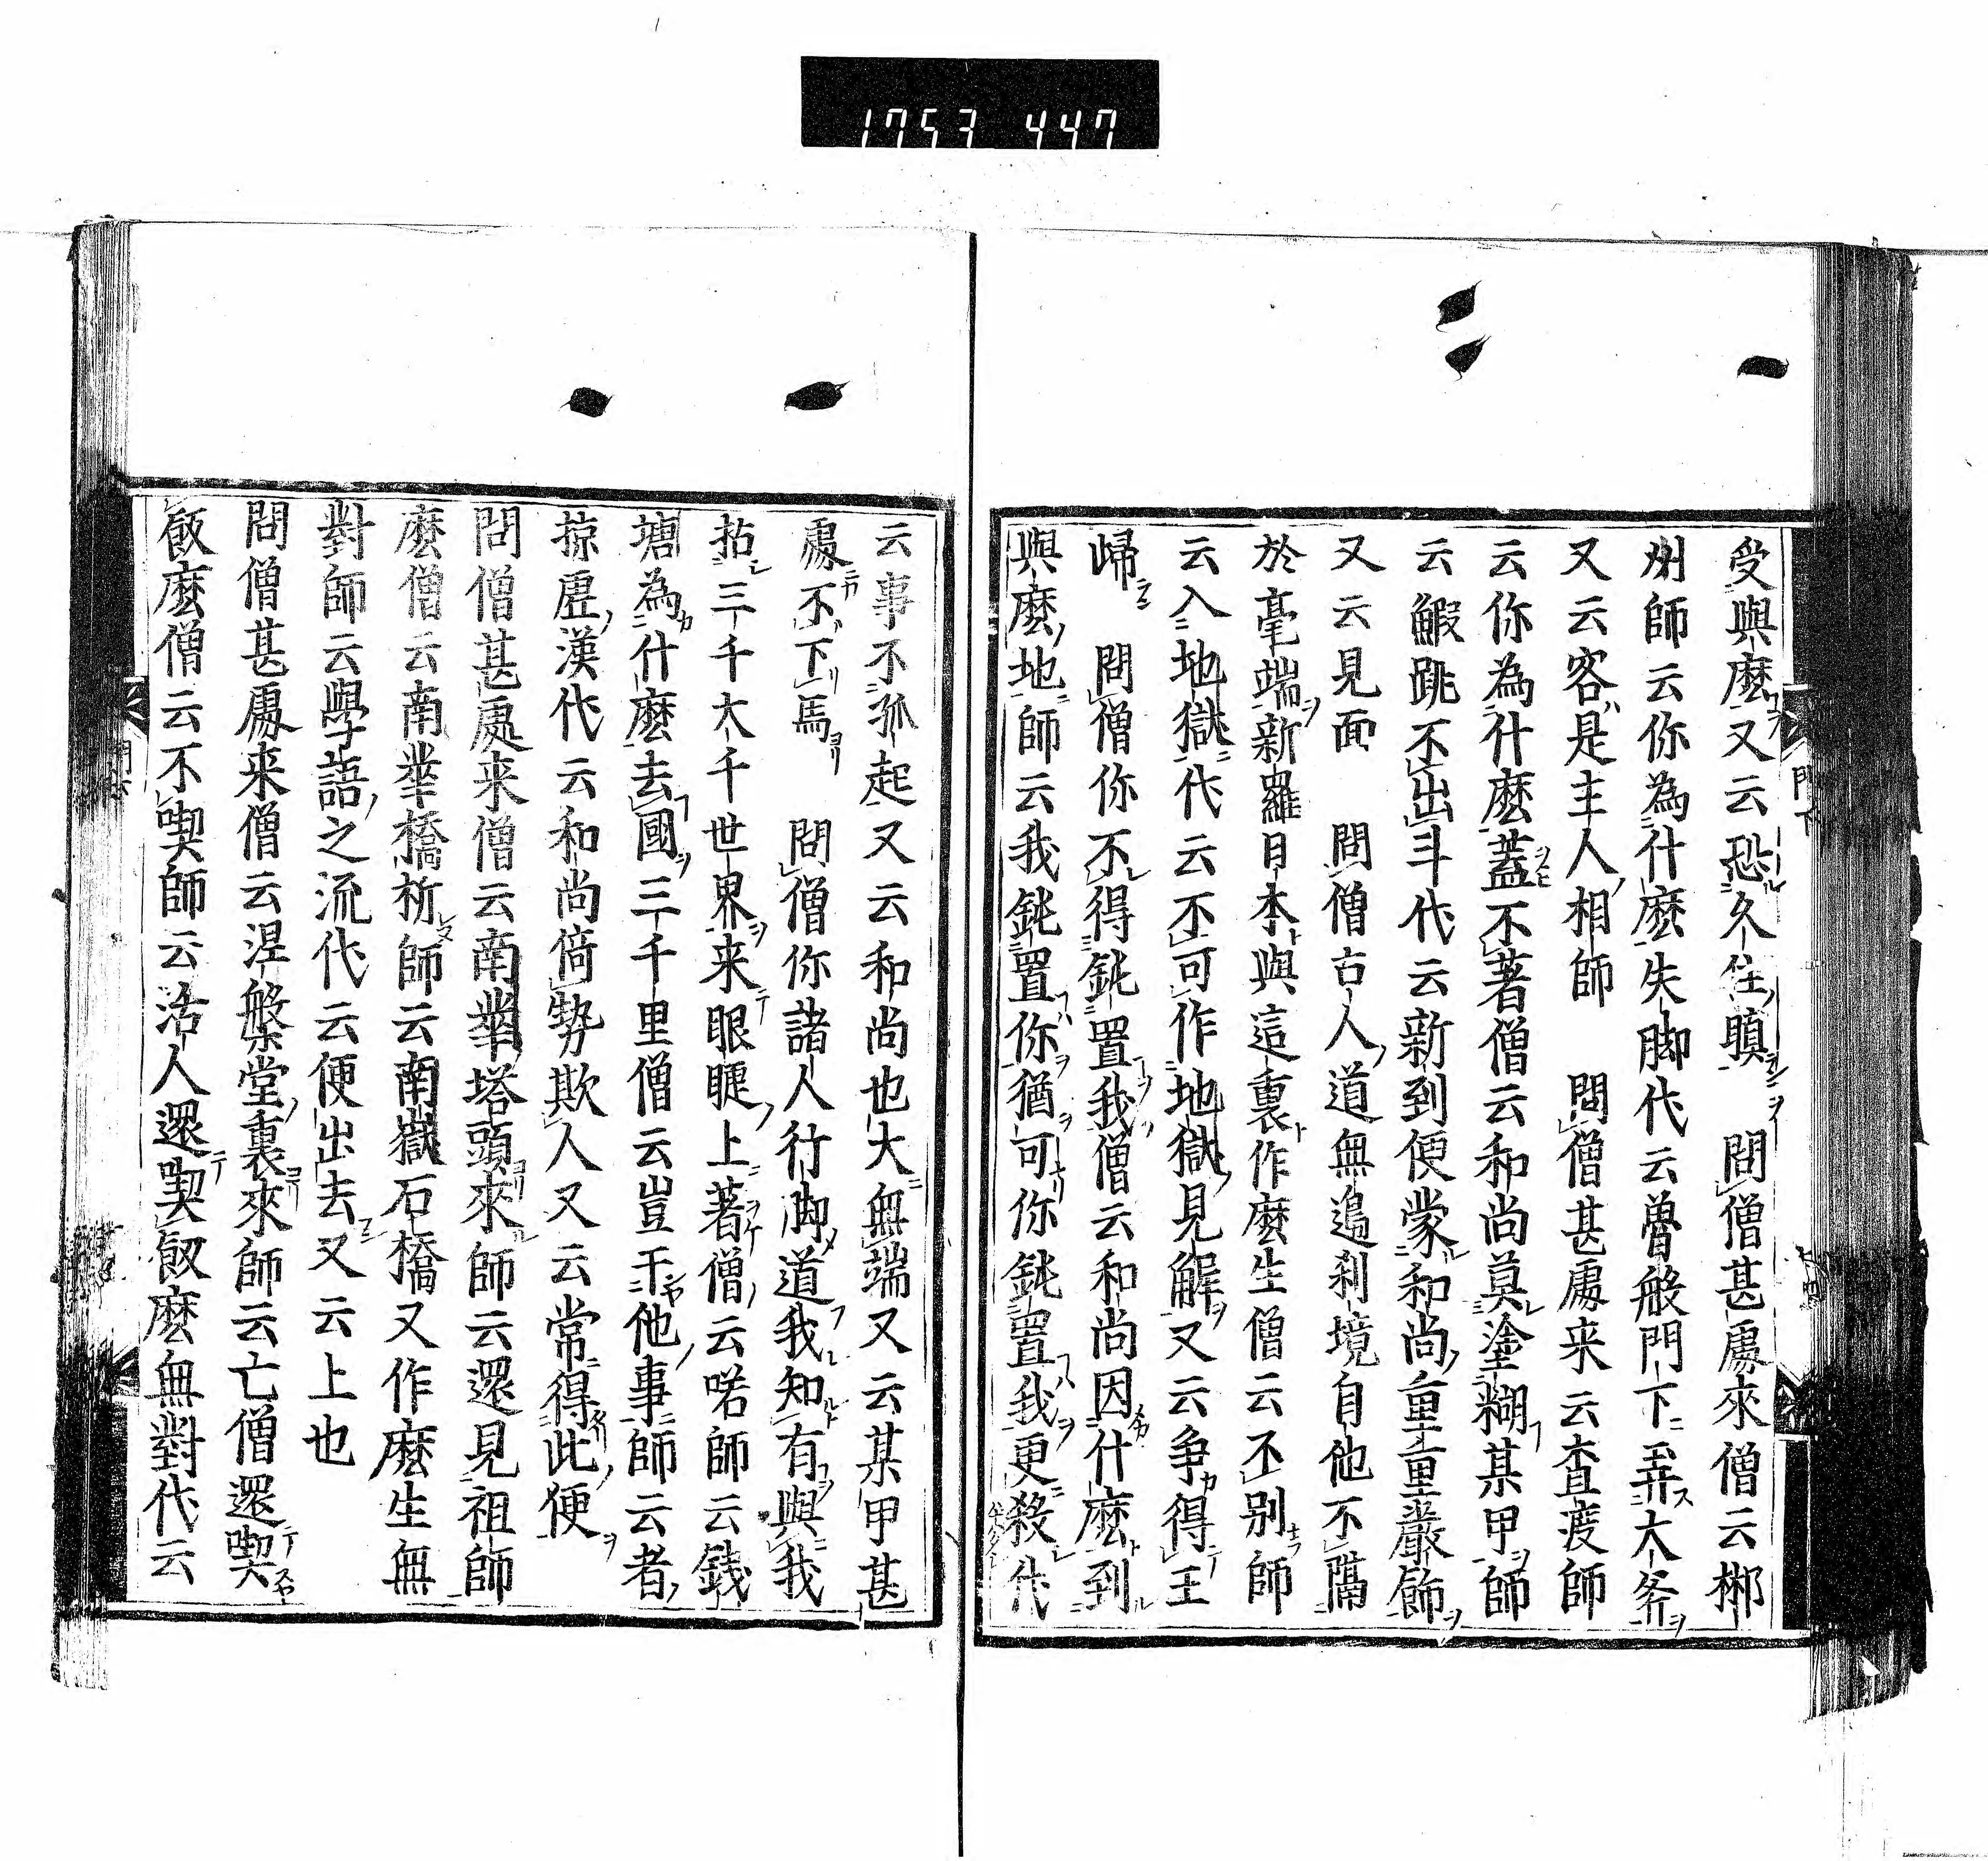 1753 447
受與麼又云恐久住瞋　問僧甚處來僧云郴
州師云你為什麼失脚代云魯般門下弄大斧
又云客是主人相師　問僧甚處来云査渡師
云你為什麼蓋不著僧云和尚莫塗糊某甲師
云鰕跳不出斗代云新到便蒙和尚重重嚴飾
又云見面　問僧古人道無邉刹境自他不隔
於毫端新羅日本與這裏作麼生僧云不别師
云入地獄代云不可作地獄見解又云争得王
歸　問僧你不得鈍置我僧云和尚因什麼到
與麼地師云我鈍置你猶可你鈍置我更殺代
云事不孤起又云和尚也大無端又云某甲甚
處不下馬　問僧你諸人行脚道我知有與我
拈三千大千世界来眼睫上著僧云喏師云錢
塘為什麼去國三千里僧云豈干他事師云者
掠虚漢代云和尚倚勢欺人又云常得此便
問僧甚處来僧云南華塔頭來師云還見祖師
麼僧云南華橋析師云南嶽石橋又作麼生無
對師云學語之流代云便出去又云上也
問僧甚處来僧云涅槃堂裏來師云亡僧還喫
飯麼僧云不喫師云活人還喫飯麼無對代云